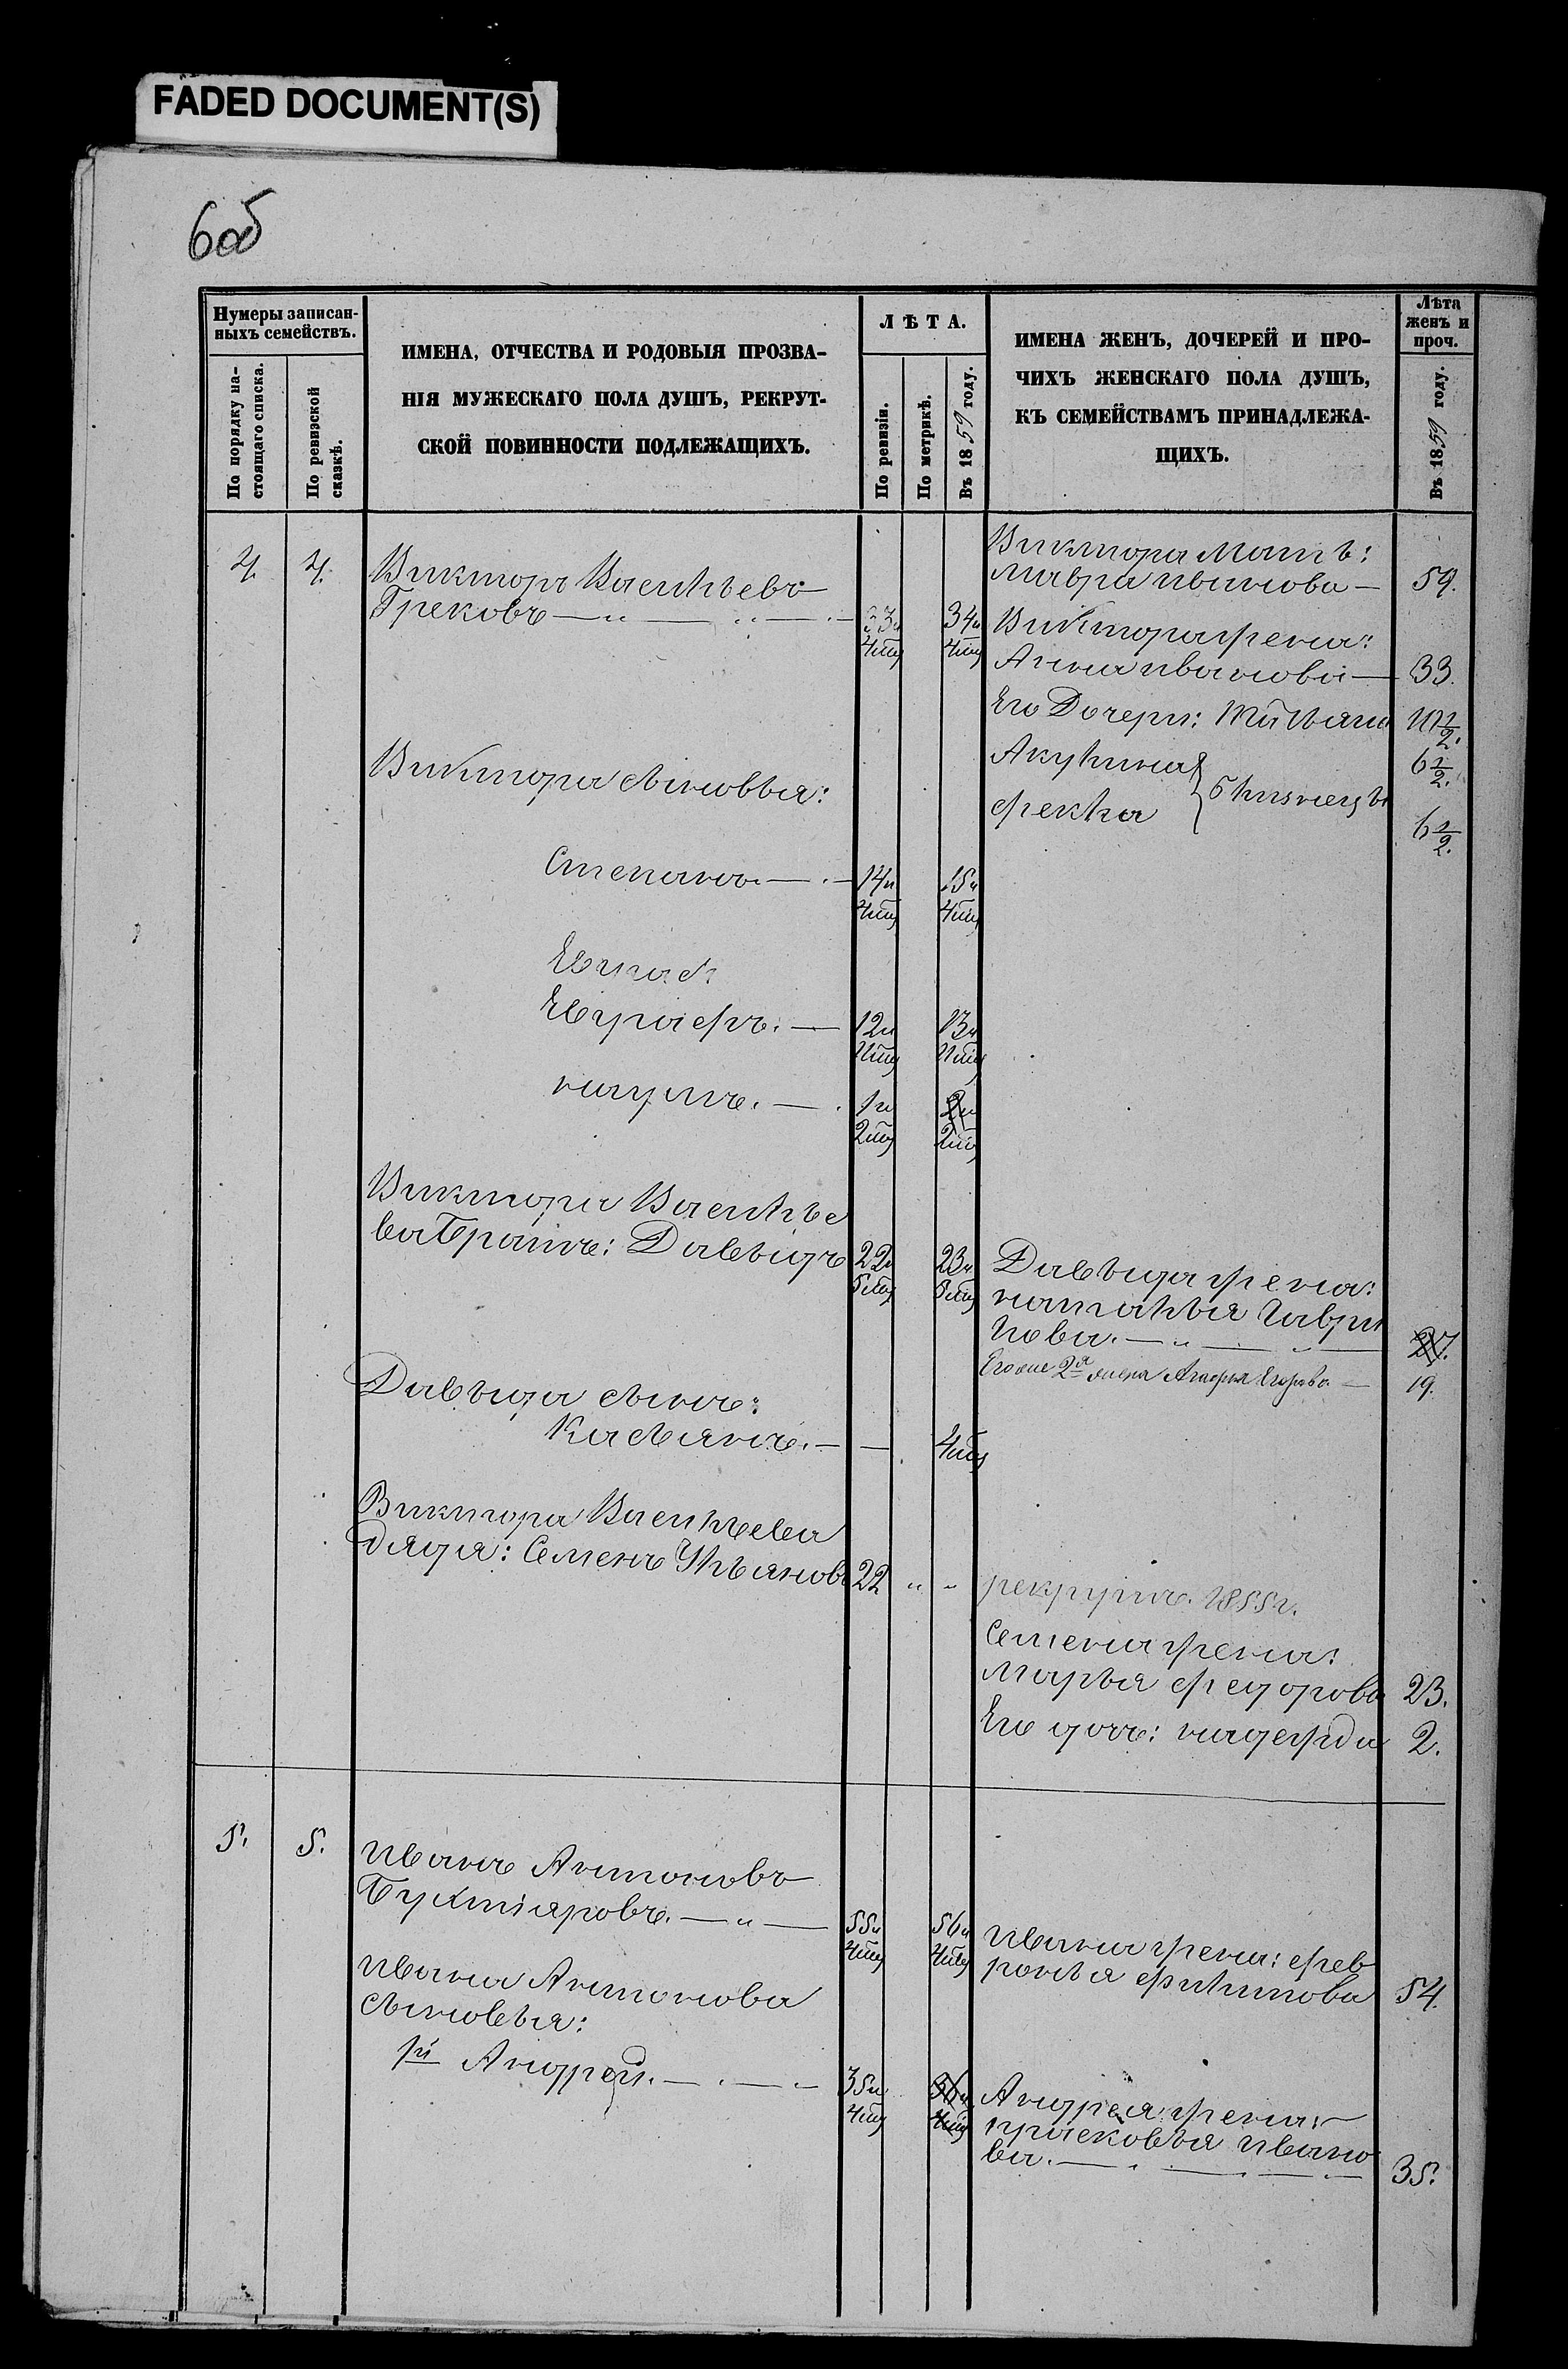 FADED DOCUMENT(S)
6об
Нумеры записан-
ныхъ семействъ.
По порядку на-
стоящаго списка.
По ревизской
сказкѣ.
ИМЕНА, ОТЧЕСТВА И РОДОВЫЯ ПРОЗВА-
НІЯ МУЖЕСКАГО ПОЛА ДУШЪ, РЕКРУТ-
СКОЙ ПОВИННОСТИ ПОДЛЕЖАЩИХЪ.
ЛѢТА.
По ревизіи.
По метрикѣ.
Въ 1859 году.
ИМЕНА ЖЕНЪ, ДОЧЕРЕЙ И ПРО-
ЧИХЪ ЖЕНСКАГО ПОЛА ДУШЪ,
КЪ СЕМЕЙСТВАМЪ ПРИНАДЛЕЖА-
ЩИХЪ.
Лѣта
женъ и
проч.
Въ 1859 году.
4. 4. Викторъ Васильевъ
Грековъ 33 34
Виктора Мать:
Мавра Иванова 59.
Виктора жена:
Анна Иванова 33.
Его Дочери: Татьяна 10 1/2.
Акулина 6 1/2.
Фекла близнецы 6 1/2.
Виктора сыновья:
Степанъ 14 15
Евграф
Евграфъ. 12 13
Наумъ. 1 2
Виктора Василье
ва братъ: Давыдъ 22 23
Давыда жена:
Наталья Гаври
лова. 21.
Его же 2я жена Агафья Егорова 19.
Давыда сынъ:
Касьянъ.
Виктора Васильева
дядя: Семенъ Ульяновъ 22
рекрутъ. 1855 г.
Семена жена:
Марья Федорова 23.
Его дочь: Надежда 2.
5. 5. Иванъ Антоновъ
Бухтіяровъ. 55 56
Ивана жена: Фев
ронья Филипова 54.
Ивана Антонова
сыновья:
1й Андрей. 35 36
Андрея жена:
Прасковья Ивано
ва. 35.